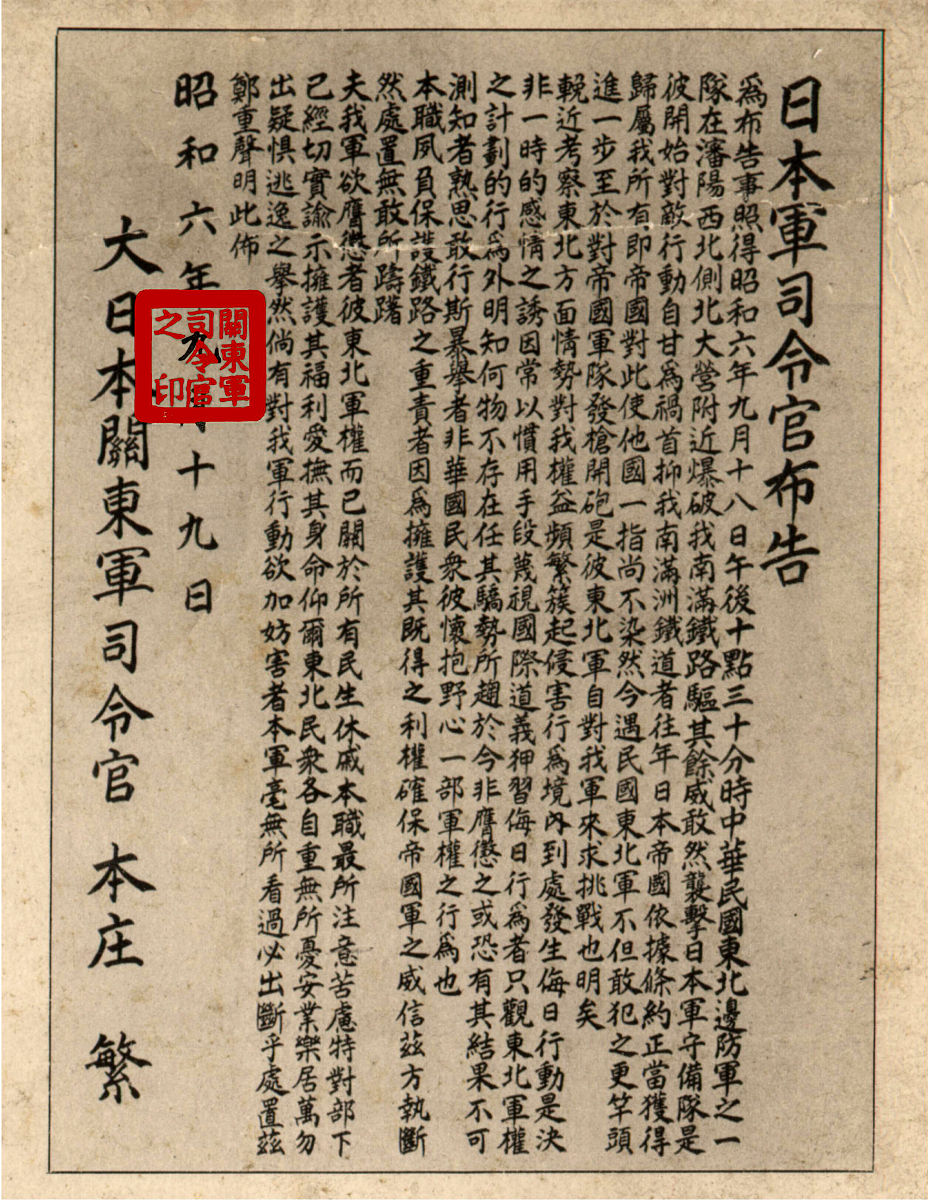 日本軍司令官布告
爲布告事照得昭和六年九月十八日午後十點三十分時中華民國東北邊防軍之一
隊在瀋陽西北側北大營附近爆破我南滿鐵路驅其餘威敢然襲擊日本軍守備隊是
彼開始對敵行動自甘爲禍首抑我南滿洲鐵道者往年日本帝國依據條約正當獲得
歸屬我所有即帝國對此使他國一指尚不染然今遇民國東北軍不但敢犯之更竿頭
進一步至於對帝國軍隊發槍開砲是彼東北軍自對我軍來求挑戰也明矣
輓近考察東北方面情勢對我權益頻繁簇起侵害行爲境內到處發生侮日行動是決
非一時的感情之誘因常以慣用手段蔑視國際道義狎習侮日行爲者只觀東北軍權
之計劃的行爲外明知何物不存在任其驕勢所趨於今非膺懲之或恐有其結果不可
測知者熟思敢行斯暴舉者非華國民衆彼懷抱野心一部軍權之行爲也
本職夙負保護鐵路之重責者因爲擁護其既得之利權確保帝國軍之威信茲方執斷
然處置無敢所躊躇
夫我軍欲膺懲者彼東北軍權而已關於所有民生休戚本職最所注意苦慮特對部下
已經切實諭示擁護其福利愛撫其身命仰爾東北民衆各自重無所憂安業樂居萬勿
出疑惧逃逸之舉然倘有對我軍行動欲加妨害者本軍毫無所看過必出斷乎處置茲
鄭重聲明此佈
昭和六年九月十九日
大日本關東軍司令官 本庄 繁
關東軍
司令官
之印